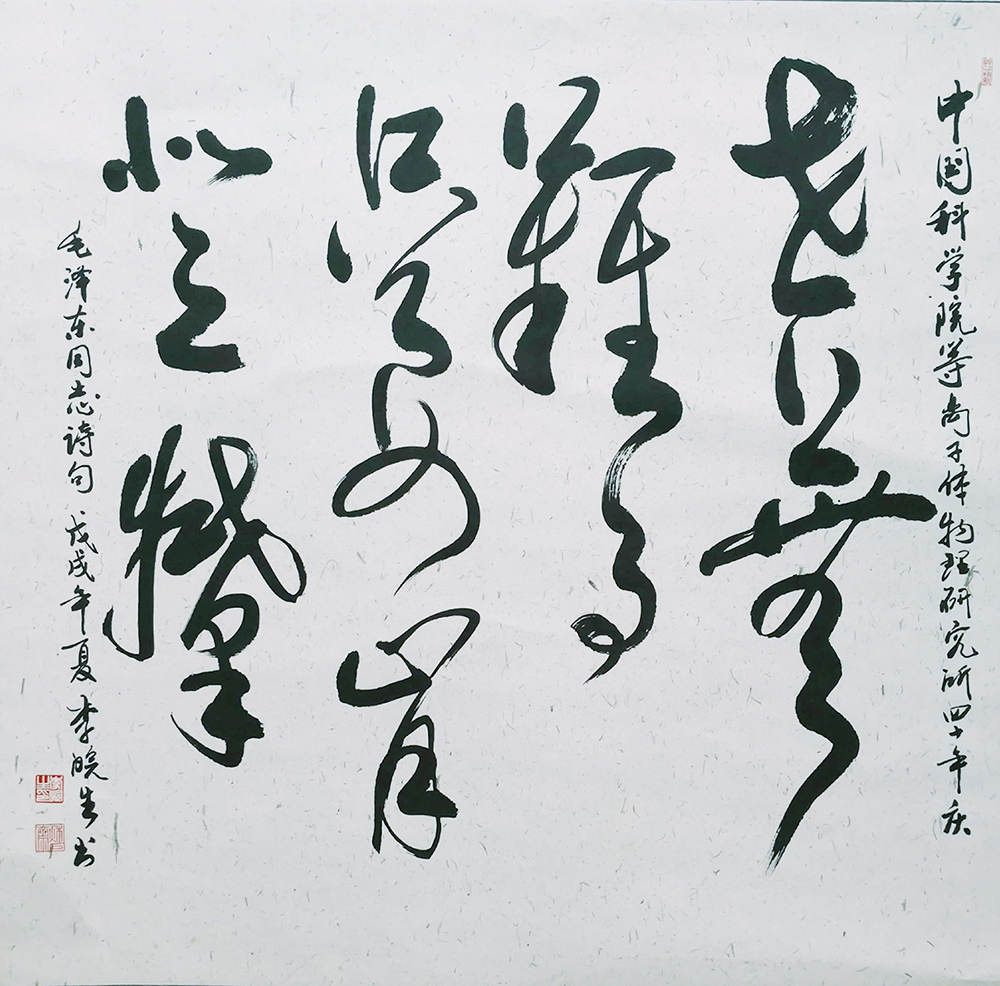 中国科学院等离子体物理研究所四十年庆
世上無
難事
只要肯
登攀
毛泽东同志诗句 戊戌年夏 李皖生书